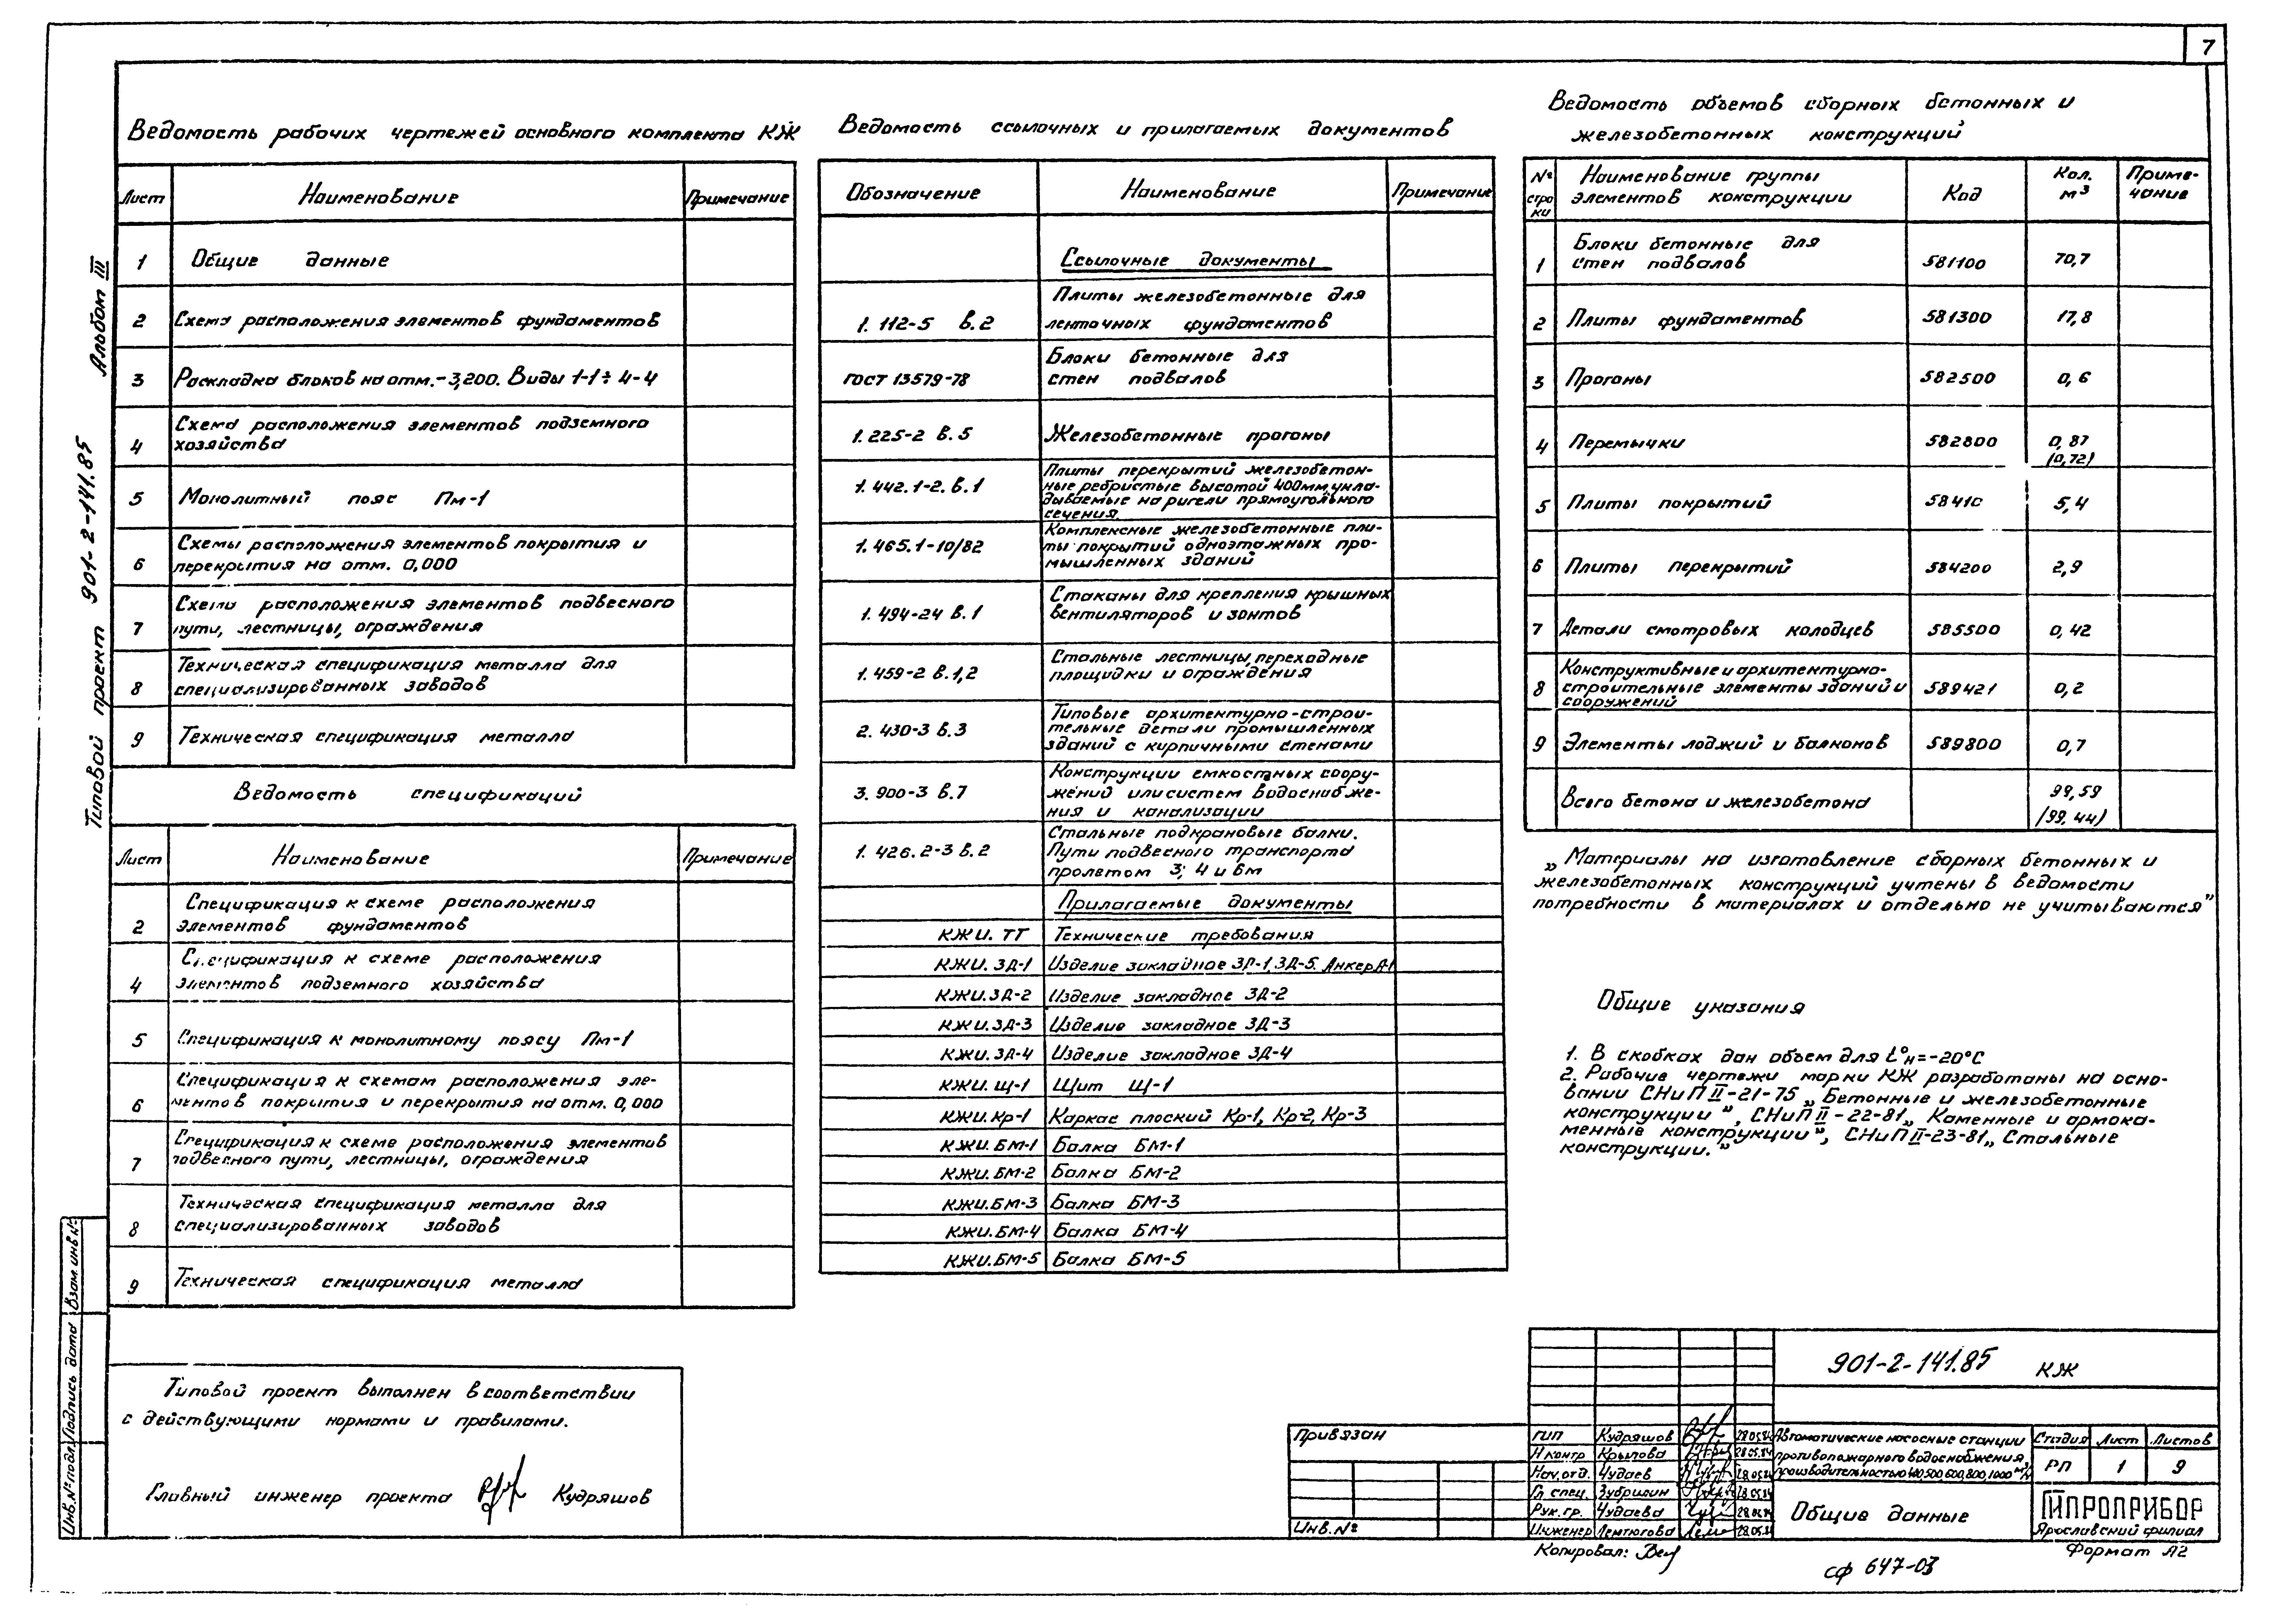 7
Альбом III
Типовой проект 901-2-141.85
Ведомость рабочих чертежей основного комплекта КЖ
Лист Наименование Примечание
1 Общие данные
2 Схема расположения элементов фундаментов
3 Раскладка блоков на отм.-3,200. Виды 1-1÷4-4
4 Схема расположения элементов подземного
хозяйства
5 Монолитный пояс Пм-1
6 Схемы расположения элементов покрытия и
перекрытия на отм. 0,000
7 Схемы расположения элементов подвесного
пути, лестницы, ограждения
8 Техническая спецификация металла для
специализированных заводов
9 Техническая спецификация металла
Ведомость спецификаций
Лист Наименование Примечание
2 Спецификация к схеме расположения
элементов фундаментов
4 Спецификация к схеме расположения
элементов подземного хозяйства
5 Спецификация к монолитному поясу Пм-1
6 Спецификация к схемам расположения эле-
ментов покрытия и перекрытия на отм. 0,000
7 Спецификация к схеме расположения элементов
подвесного пути, лестницы, ограждения
8 Техническая спецификация металла для
специализированных заводов
9 Техническая спецификация металла
Типовой проект выполнен в соответствии
с действующими нормами и правилами.
Главный инженер проекта Кудряшов
Инв.№ подл. Подпись дата Взам. инв №
Ведомость ссылочных и прилагаемых документов
Обозначение Наименование Примечание
Ссылочные документы
1.112-5 в.2 Плиты железобетонные для
ленточных фундаментов
ГОСТ 13579-78 Блоки бетонные для
стен подвалов
1.225-2 в.5 Железобетонные прогоны
1.442.1-2.в.1 Плиты перекрытий железобетон-
ные ребристые высотой 400мм, укла-
дываемые на ригели прямоугольного
сечения.
1.465.1-10/82 Комплексные железобетонные пли-
ты покрытий одноэтажных про-
мышленных зданий
1.494-24 в.1 Стаканы для крепления крышных
вентиляторов и зонтов
1.459-2 в.1,2 Стальные лестницы, переходные
площадки и ограждения
2.430-3 в.3 Типовые архитектурно-строи-
тельные детали промышленных
зданий с кирпичными стенами
3.900-3 в.7 Конструкции емкостных соору-
жений или систем водоснабже-
ния и канализации
1.426.2-3 в.2 Стальные подкрановые балки.
Пути подвесного транспорта
пролетом 3; 4 и 6м
Прилагаемые документы
КЖИ. ТТ Технические требования
КЖИ. ЗД-1 Изделие закладное ЗД-1, ЗД-5. Анкер А-1
КЖИ.ЗД-2 Изделие закладное ЗД-2
КЖИ.ЗД-3 Изделие закладное ЗД-3
КЖИ.ЗД-4 Изделие закладное ЗД-4
КЖИ.Щ-1 Щит Щ-1
КЖИ.Кр-1 Каркас плоский Кр-1, Кр-2, Кр-3
КЖИ.БМ-1 Балка БМ-1
КЖИ.БМ-2 Балка БМ-2
КЖИ.БМ-3 Балка БМ-3
КЖИ.БМ-4 Балка БМ-4
КЖИ.БМ-5 Балка БМ-5
Ведомость объемов сборных бетонных и
железобетонных конструкций
№ строки Наименование группы элементов конструкции Код Кол. м³ Приме-чание
1 Блоки бетонные для
стен подвалов 581100 70,7
2 Плиты фундаментов 581300 17,8
3 Прогоны 582500 0,6
4 Перемычки 582800 0,87
(0,72)
5 Плиты покрытий 58410 5,4
6 Плиты перекрытий 584200 2,9
7 Детали смотровых колодцев 585500 0,42
8 Конструктивные и архитектурно-
строительные элементы зданий и
сооружений 589421 0,2
9 Элементы лоджий и балконов 589800 0,7
Всего бетона и железобетона 99,59
(99,44)
„Материалы на изготовление сборных бетонных и
железобетонных конструкций учтены в ведомости
потребности в материалах и отдельно не учитываются”
Общие указания
1. В скобках дан объем для t°н=-20°С
2. Рабочие чертежи марки КЖ разработаны на осно-
вании СНиП II-21-75 „Бетонные и железобетонные
конструкции”, СНиП II-22-81„Каменные и армока-
менные конструкции”, СНиП II-23-81„Стальные
конструкции.”
901-2-141.85 КЖ
Привязан
Инв.№
ГИП Кудряшов 28.05.84
Н контр Крылова 28.05.84
Нач.отд. Чудаев 28.05.84
Гл спец. Зубрилин 28.05.84
Рук.гр. Чудаева 28.05.84
Инженер Лемтюгова 28.05.84
Автоматические насосные станции
противопожарного водоснабжения,
производительностью 400,500,600,800,1000 м³/ч
Стадия Лист Листов
РП 1 9
Общие данные
ГИПРОПРИБОР
Ярославский филиал
Копировал:
Формат А2
сф 647-03